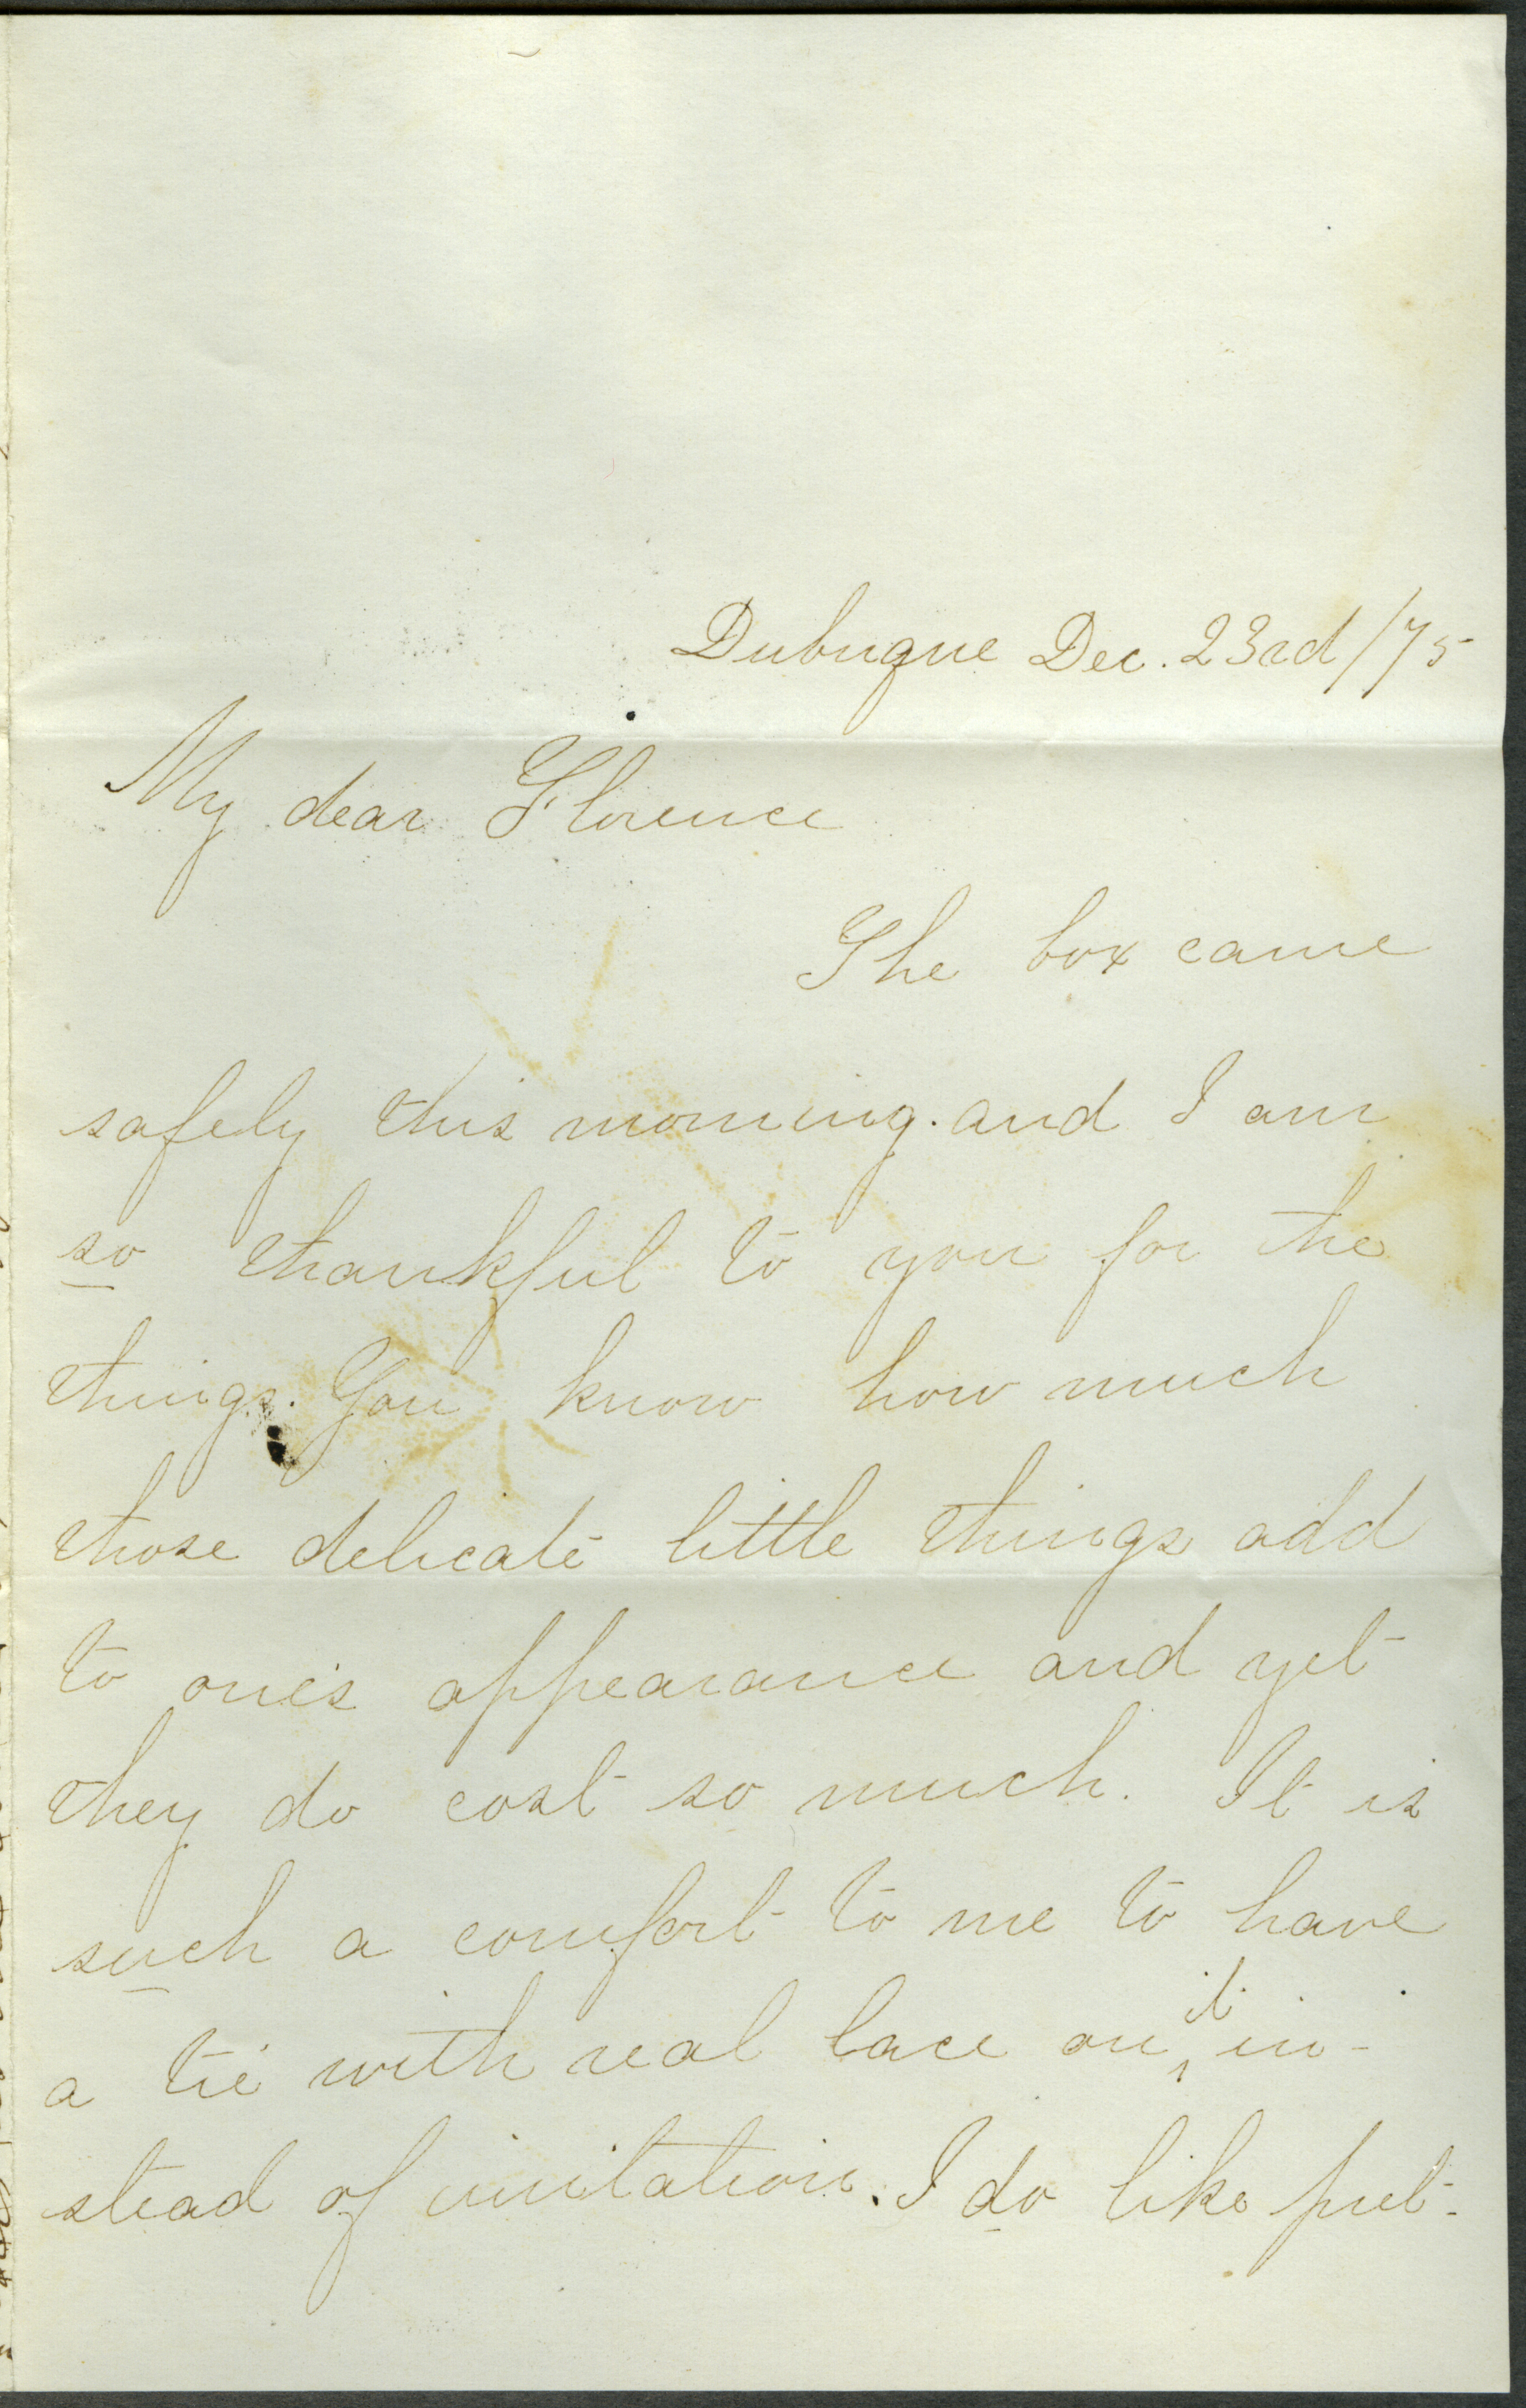 Dubuque Dec. 23rd/75
My dear Florence
The box came
safely this morning. and I am
so thankful to you for the
things. You know how much
those delicate little things add
to one's appearance and yet
they do cost so much. It is
such a comfort to me to have
a tie with real lace on it in-
stead of imitation. I do like pret-